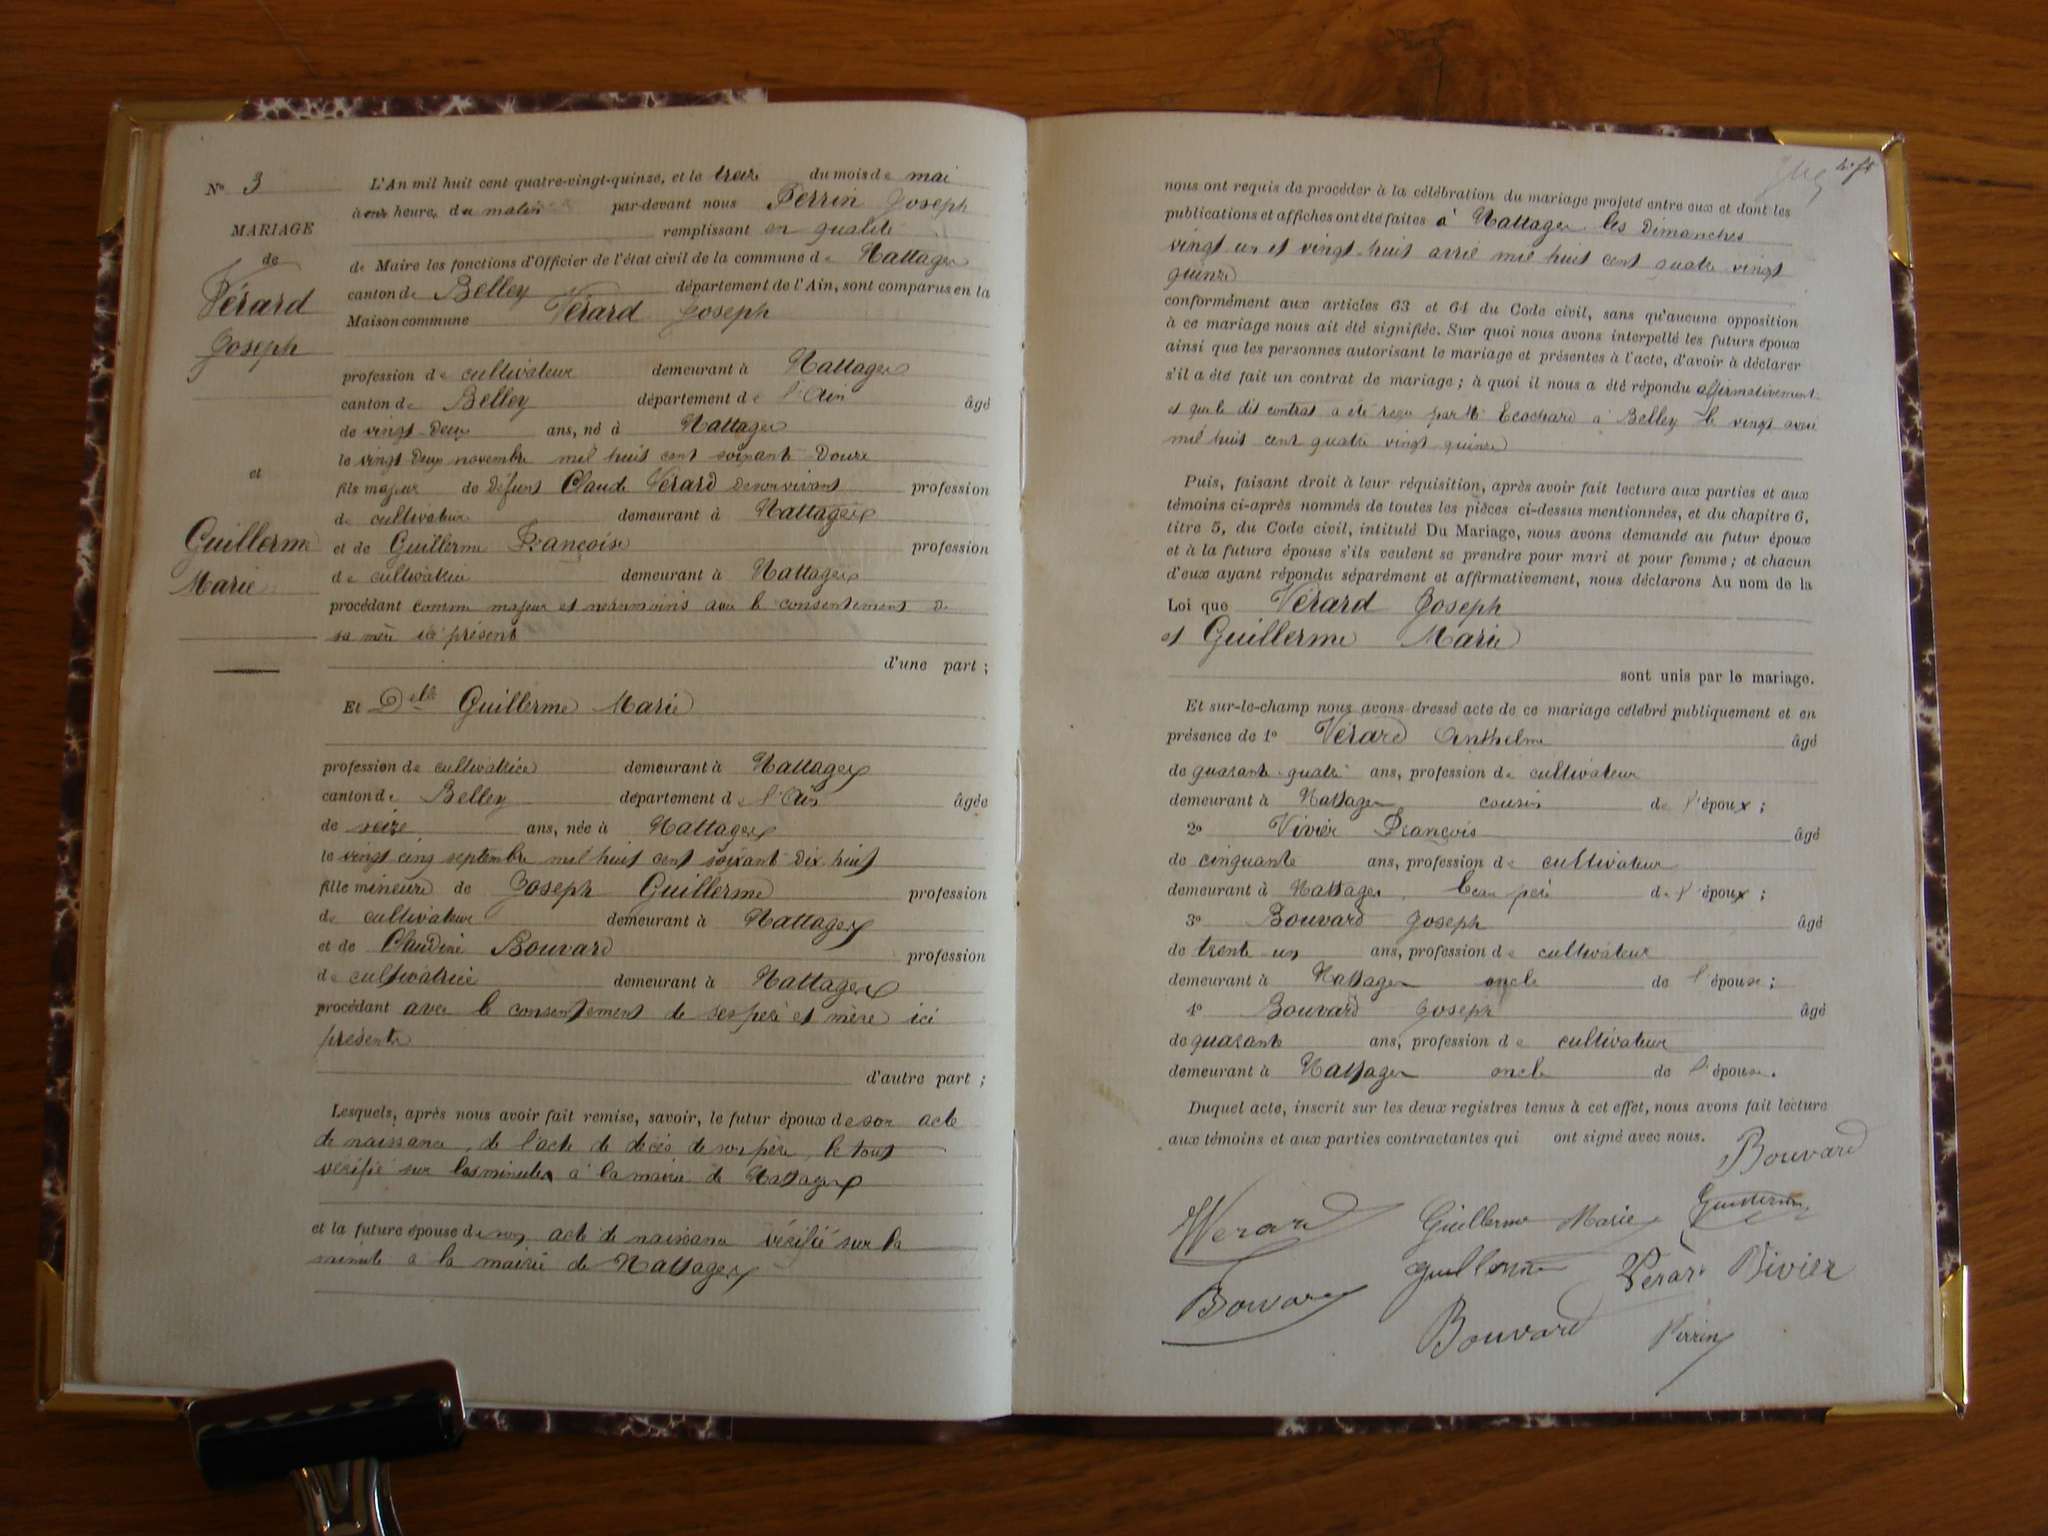 No 3
MARIAGE
de
Vérard
Joseph
et
Guillerme
Marie
L'An mil huit cent quatre-vingt-quinze, et le treize du mois de mai
à onze heures du matin par-devant nous Perrin Joseph
remplissant en qualité
de Maire les fonctions d'Officier de l'état civil de la commune de Nattages
canton de Belley département de l'Ain, sont comparus en la
Maison commune Vérard Joseph
profession de cultivateur demeurant à Nattages
canton de Belley département de l'Ain âgé
de vingt-deux ans, né à Nattages
le vingt deux novembre mil huit cent soixante douze
fils majeur de défunt Claude Vérard de son vivant profession
de cultivateur demeurant à Nattages
et de Guillerme Françoise profession
de cultivatrice demeurant à Nattages
procédant comme majeur et néanmoins avec le consentement de
sa mère ici présent
d'une part ;
Et Delle Guillerme Marie
profession de cultivatrice demeurant à Nattages
canton de Belley département de l'Ain âgée
de seize ans, née à Nattages
le vingt cinq septembre mil huit cent soixante dix huit
fille mineure de Joseph Guillerme profession
de cultivateur demeurant à Nattages
et de Claudine Bouvard profession
de cultivatrice demeurant à Nattages
procédant avec le consentement de ses père et mère ici
présents
d'autre part ;
Lesquels, après nous avoir fait remise, savoir, le futur époux de son acte
de naissance, de l'acte de décès de son père, le tout
vérifié sur les minutes à la mairie de Nattages
et la future épouse de son acte de naissance vérifié sur la
minute à la mairie de Nattages
nous ont requis de procéder à la célébration du mariage projeté entre eux et dont les
publications et affiches ont été faites à Nattages les Dimanches
vingt un et vingt-huit avril mil huit cent quatre vingt
quinze
conformément aux articles 63 et 64 du Code civil, sans qu'aucune opposition
à ce mariage nous ait été signifiée. Sur quoi nous avons interpellé les futurs époux
ainsi que les personnes autorisant le mariage et présentes à l'acte, d'avoir à déclarer
s'il a été fait un contrat de mariage ; à quoi il nous a été répondu affirmativement
et que le dit contrat a été reçu par Me Ecochard à Belley le vingt avril
mil huit cent quatre vingt quinze
Puis, faisant droit à leur réquisition, après avoir fait lecture aux parties et aux
témoins ci-après nommés de toutes les pièces ci-dessus mentionnées, et du chapitre 6,
titre 5, du Code civil, intitulé Du Mariage, nous avons demandé au futur époux
et à la future épouse s'ils veulent se prendre pour mari et pour femme ; et chacun
d'eux ayant répondu séparément et affirmativement, nous déclarons Au nom de la
Loi que Vérard Joseph
et Guillerme Marie
sont unis par le mariage.
Et sur-le-champ nous avons dressé acte de ce mariage célébré publiquement et en
présence de 1o Vérard Anthelme âgé
de quarante-quatre ans, profession de cultivateur
demeurant à Nattages cousin de l'époux ;
2o Vivier François âgé
de cinquante ans, profession de cultivateur
demeurant à Nattages, beau père de l'époux ;
3o Bouvard Joseph âgé
de trente un ans, profession de cultivateur
demeurant à Nattages oncle de l'épouse ;
4o Bouvard Joseph âgé
de quarante ans, profession de cultivateur
demeurant à Nattages oncle de l'épouse.
Duquel acte, inscrit sur les deux registres tenus à cet effet, nous avons fait lecture
aux témoins et aux parties contractantes qui ont signé avec nous.
Bouvard
Verard Guillerme Marie Guillerme
Guillerme Vérard Vivier
Bouvard
Bouvard Perrin